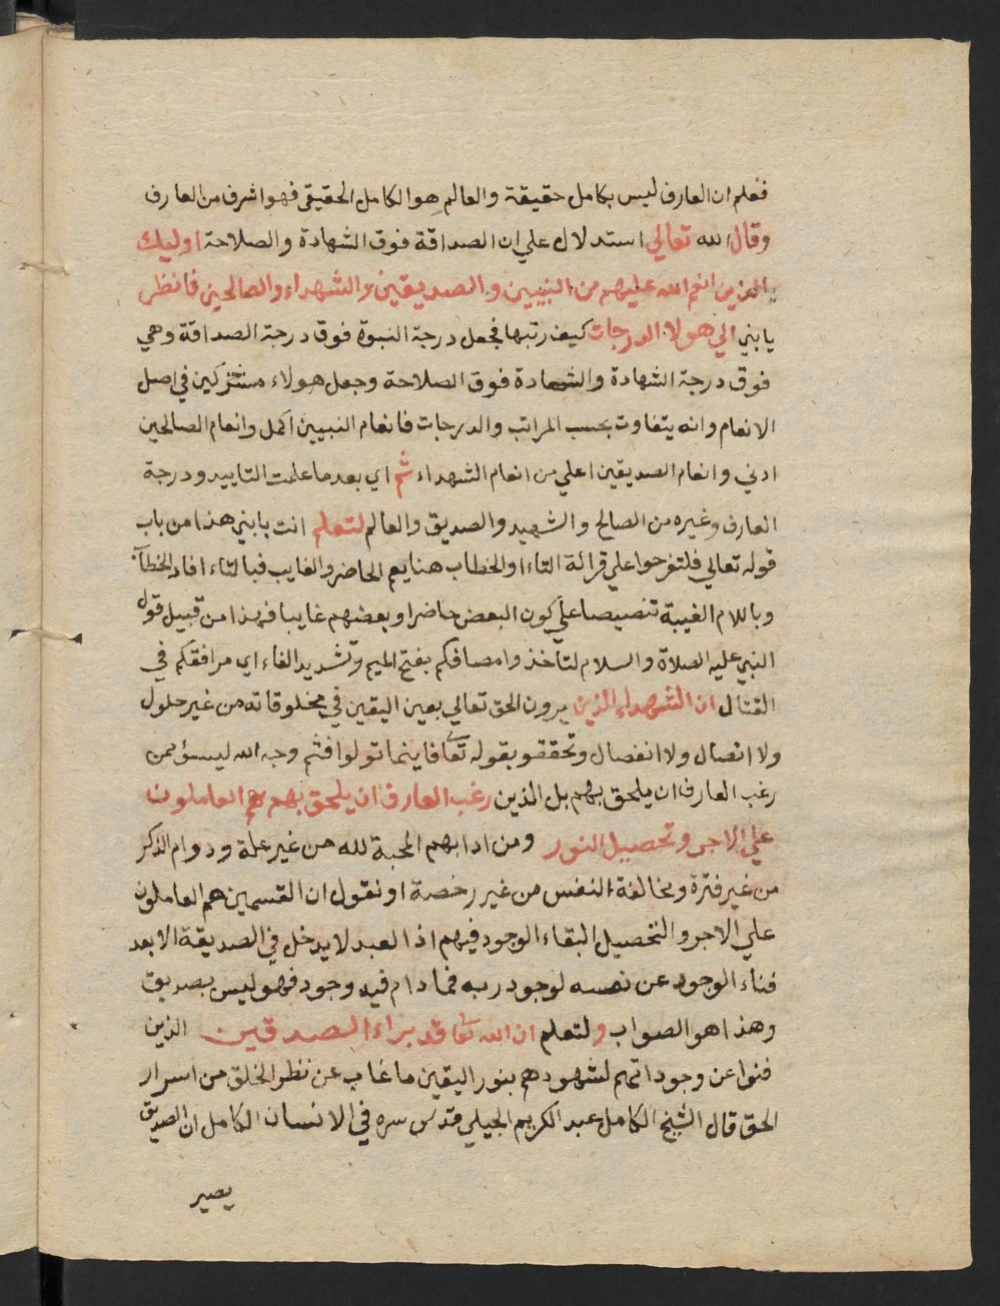 فعلم ان العارف ليس بكامل حقيقة والعالم هو الكامل الحقيقي فهو اشرف من العارف
وقال الله تعالي استدلال علي ان الصداقة فوق الشهادة والصلاحة اوليك
الذين انعم الله عليهم من النبيين والصديقين والشهداء والصالحين فانظر
يا بني الي هولاء الدرجات كيف رتبها فجعل درجة النبوة فوق درجة الصداقة وهي
فوق درجة الشهادة والشهادة فوق الصلاحة وجعل هولاء مشتركين في اصل
الانعام وانه يتفاوت بحسب المراتب والدرجات فانعام النبيين اكمل وانعام الصالحين
ادني وانعام الصديقين اعلي من انعام الشهداء ثم اي بعد ما علمت التاييد ودرجة
العارف وغيره من الصالح والشهيد والصديق والعالم لتعلم انت يا بني هذا من باب
قوله تعالي فلتفرحوا علي قرائة التاء او الخطاب هنا يعم الحاضر والغايب فبالتاء افاد الخطاب
وباللام الغيبة تنصيصا علي كون البعض حاضرا وبعضهم غايبا فهذا من قبيل قول
النبي عليه الصلاة والسلام لتأخذوا مصافكم بفتح الميم وتشديد الفاء اي مرافقكم في
القتال ان الشهداء الذين يرون الحق تعالي بعين اليقين في مخلوقاته من غير حلول
ولا اتصال ولا انفصال وتحققو بقوله تعا فاينما تولوا فثم وجه الله ليسؤ ممن
رغب العارف ان يلحق بهم بل الذين رغب العارف ان يلحق بهم هم العاملون
علي الاجر وتحصيل النور ومن ادابهم المحبة لله من غير علة ودوام الذكر
من غير فترة ومخالفة النفس من غير رخصة او نقول ان القسمين هم العاملون
علي الاجر والتحصيل البقاء الوجود فيهم اذا العبد لا يدخل في الصديقة الا بعد
فناء الوجود عن نفسه لوجود ربه فما دام فيه وجود فهو ليس بصديق
وهذا هو الصواب ولتعلم ان الله تعا قد براء الصدقين الذين
فنوا عن وجوداتهم لشهودهم بنور اليقين ما غاب عن نظر الخلق من اسرار
الحق قال الشيخ الكامل عبد الكريم الجيلي قدس سره في الانسان الكامل ان الصديق
يصير